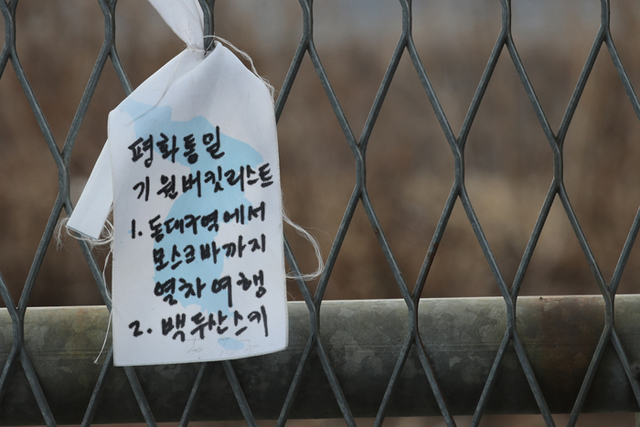 평화통일
기원버킷리스트
1. 동대구역에서
모스크바까지
열차여행
2. 백두산스키